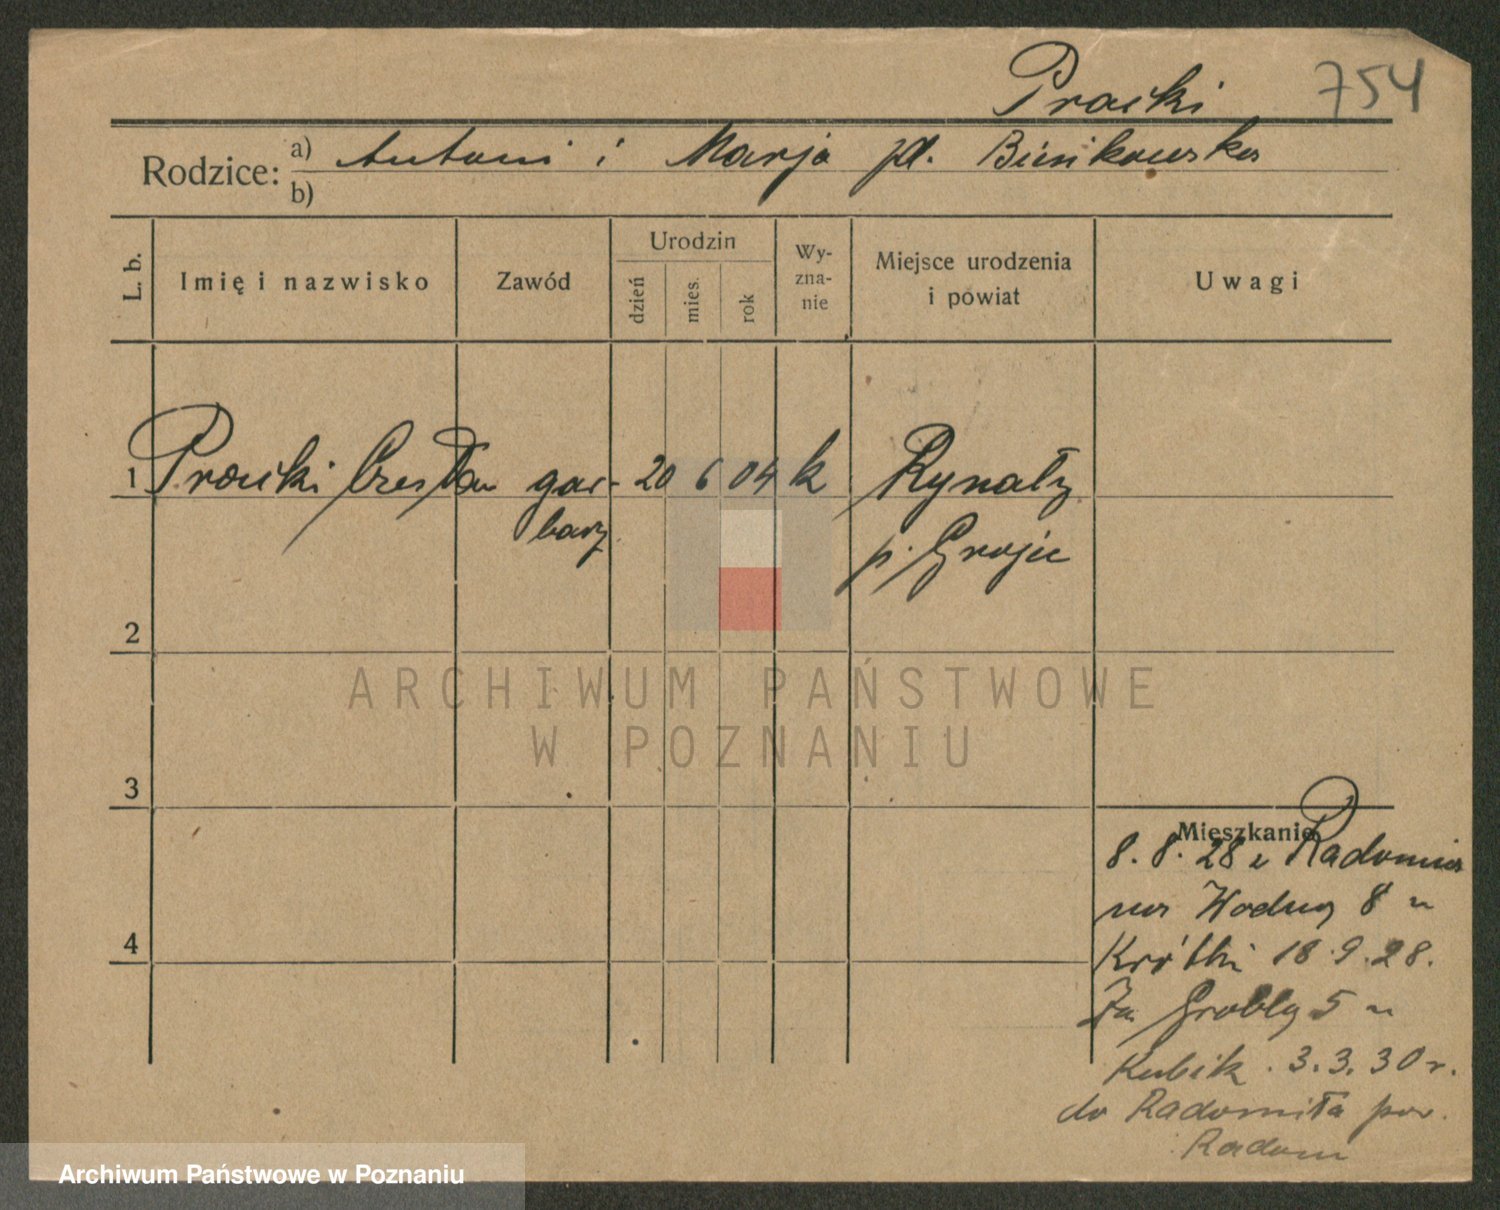 Pracki 754
Rodzice: a) Antoni i Marja zd. Binikowska
b)
L. b. Imię i nazwisko Zawód Urodzin dzień mies. rok Wy-zna-nie Miejsce urodzenia i powiat Uwagi
1 Pracki Czesław gar- 20 6 04 k Rynały
barz p. Grojec
2
ARCHIWUM PAŃSTWOWE
W POZNANIU
3
Mieszkanie
8. 8. 28 z Radomia
na Wodną 8 u
Krótki 18.9.28.
Za Groblą 5 u
Kubik. 3.3.30 r.
4
do Radomia pow.
Radom
Archiwum Państwowe w Poznaniu